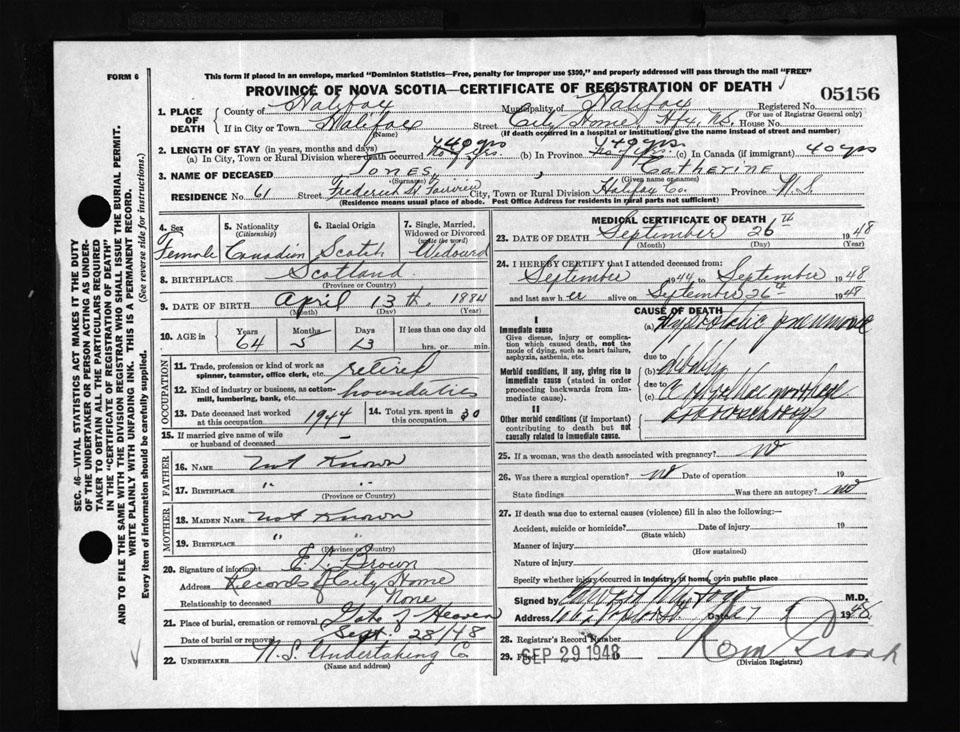 FORM 6
This form if placed in an envelope, marked "Dominion Statistics—Free, penalty for improper use $300," and properly addressed will pass through the mail "FREE"
PROVINCE OF NOVA SCOTIA—CERTIFICATE OF REGISTRATION OF DEATH
05156
1. PLACE OF DEATH County of Halifax Municipality of Halifax Registered No.
(For use of Registrar General only)
If in City or Town Halifax Street City Home Hfx. N.S. House No.
(Name) (If death occurred in a hospital or institution, give the name instead of street and number)
2. LENGTH OF STAY (in years, months and days)
(a) In City, Town or Rural Division where death occurred 40 yrs (b) In Province 40 yrs (c) In Canada (if immigrant) 40 yrs
3. NAME OF DECEASED Jones, Catherine
(Surname) (Given name or names)
RESIDENCE No. 61 Street Frederick St Fairview City, Town or Rural Division Halifax Co. Province N.S.
(Residence means usual place of abode. Post Office Address for residents in rural parts not sufficient)
4. Sex Female
5. Nationality (Citizenship) Canadian
6. Racial Origin Scotch
7. Single, Married, Widowed or Divorced (write the word) Widowed
8. BIRTHPLACE Scotland
(Province or Country)
9. DATE OF BIRTH April 13th, 1884
(Month) (Day) (Year)
10. AGE in Years Months Days If less than one day old
64 5 13 hrs. or min.
OCCUPATION
11. Trade, profession or kind of work as spinner, teamster, office clerk, etc. retired
12. Kind of industry or business, as cotton-mill, lumbering, bank, etc.
13. Date deceased last worked at this occupation 1944
14. Total yrs. spent in this occupation 30
15. If married give name of wife or husband of deceased —
FATHER
16. NAME Not Known
17. BIRTHPLACE " "
(Province or Country)
MOTHER
18. MAIDEN NAME Not Known
19. BIRTHPLACE " "
(Province or Country)
20. Signature of informant E. L. Brown
Address Records of City Home
Relationship to deceased None
21. Place of burial, cremation or removal Gate of Heaven
Date of burial or removal Sept. 28/48
22. UNDERTAKER N.S. Undertaking Co
(Name and address)
MEDICAL CERTIFICATE OF DEATH
23. DATE OF DEATH September 26th 1948
(Month) (Day) (Year)
24. I HEREBY CERTIFY that I attended deceased from:
September 1944 to September 1948
and last saw her alive on September 26th 1948
CAUSE OF DEATH
I
Immediate cause (a) Hypostatic pneumonia
Give disease, injury or complication which caused death, not the mode of dying, such as heart failure, asphyxia, asthenia, etc.
due to
Morbid conditions, if any, giving rise to immediate cause (stated in order proceeding backwards from immediate cause). (b) debility
due to
(c)
II
Other morbid conditions (if important) contributing to death but not causally related to immediate cause.
25. If a woman, was the death associated with pregnancy? no
26. Was there a surgical operation? no Date of operation 19
State findings Was there an autopsy? no
27. If death was due to external causes (violence) fill in also the following:—
Accident, suicide or homicide? Date of injury 19
(State which)
Manner of injury
(How sustained)
Nature of injury
Specify whether injury occurred in industry, in home, or in public place
Signed by M.D.
Address 1948
28. Registrar's Record Number
29. Filed SEP 29 1948
(Division Registrar)
SEC. 46—VITAL STATISTICS ACT MAKES IT THE DUTY
OF THE UNDERTAKER OR PERSON ACTING AS UNDER-
TAKER TO OBTAIN ALL THE PARTICULARS REQUIRED
IN THE "CERTIFICATE OF REGISTRATION OF DEATH"
AND TO FILE THE SAME WITH THE DIVISION REGISTRAR WHO SHALL ISSUE THE BURIAL PERMIT.
WRITE PLAINLY WITH UNFADING INK. THIS IS A PERMANENT RECORD.
Every item of information should be carefully supplied. (See reverse side for instructions.)